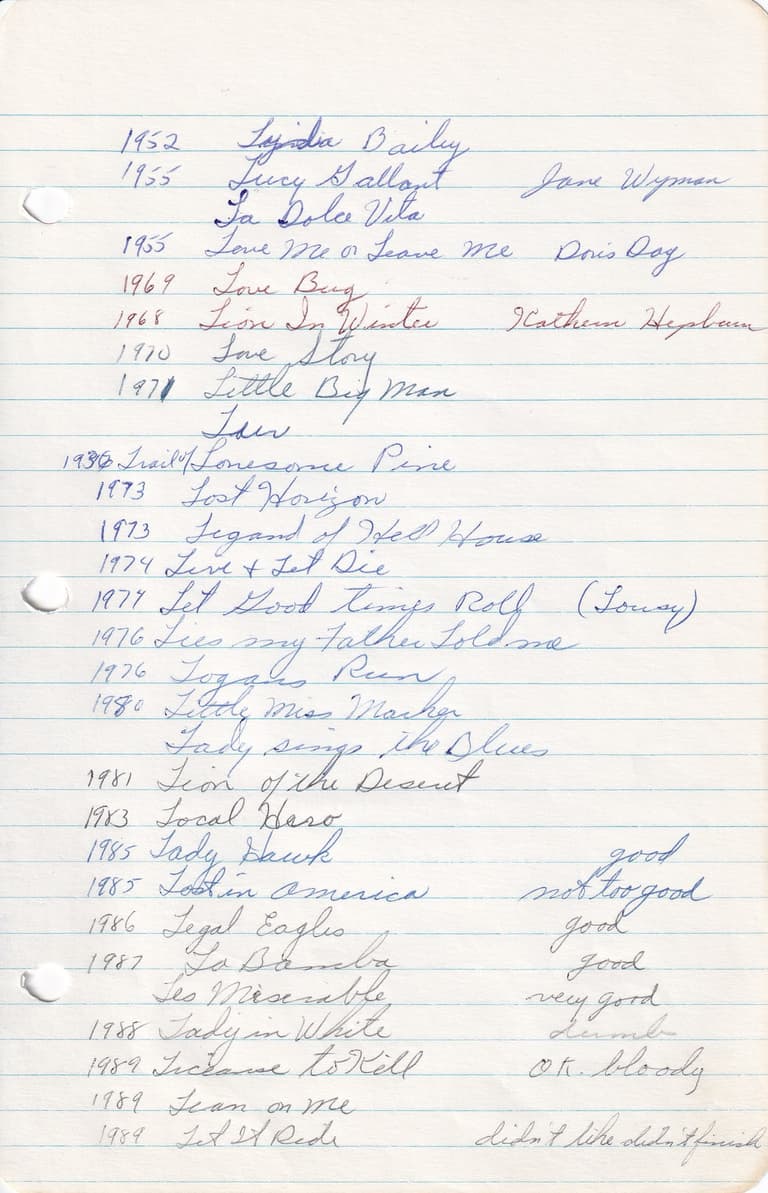 1952 Lydia Bailey
1955 Lucy Gallant Jane Wyman
La Dolce Vita
1955 Love Me or Leave Me Doris Day
1969 Love Bug
1968 Lion In Winter Kathern Hepburn
1970 Love Story
1971 Little Big Man
1936 Trail of Lonesome Pine
1973 Lost Horizon
1973 Legand of Hell House
1974 Live + Let Die
1974 Let Good times Roll (Lousy)
1976 Lies my Father Told me
1976 Logans Run
1980 Little Miss Marker
Lady sings the Blues
1981 Lion of the Desert
1983 Local Hero
1985 Lady Hawk good
1985 Lost in America not too good
1986 Legal Eagles good
1987 La Bamba good
Les Miserable very good
1988 Lady in White dumb
1989 Licease to Kill OK. bloody
1989 Lean on Me
1989 Let It Ride didn't like didn't finish